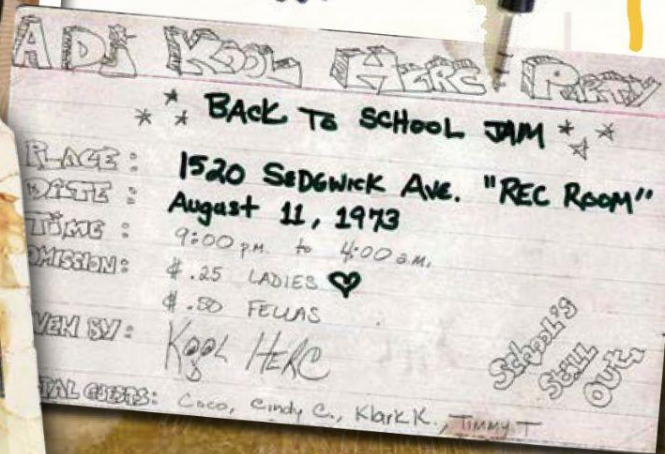 A DJ KOOL HERC PARTY
BACK TO SCHOOL JAM
PLACE: 1520 SEDGWICK AVE. "REC ROOM"
DATE: August 11, 1973
TIME: 9:00 P.M. to 4:00 a.m.
DMISSION: $.25 LADIES
$.50 FELLAS
VEN BY: Kool HERC
SCHOOL'S
STILL
OUT,
IAL GUESTS: Coco, Cindy C., Klark K., TIMMY T